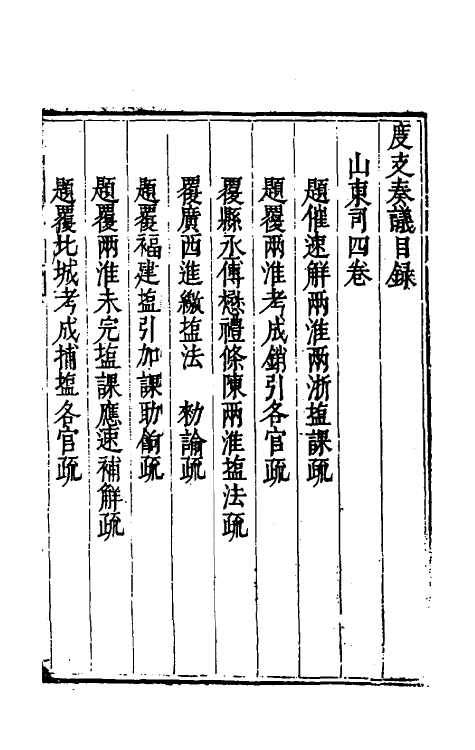 度支奏議目録
山東司四卷
題催速解兩淮兩浙塩課疏
題覆兩淮考成銷引各官疏
覆縣丞傅懋禮條陳兩淮塩法疏
覆廣西進繳塩法 勑諭疏
題覆福建塩引加課助餉疏
題覆兩淮未完塩課應速補解疏
題覆北城考成捕塩各官疏